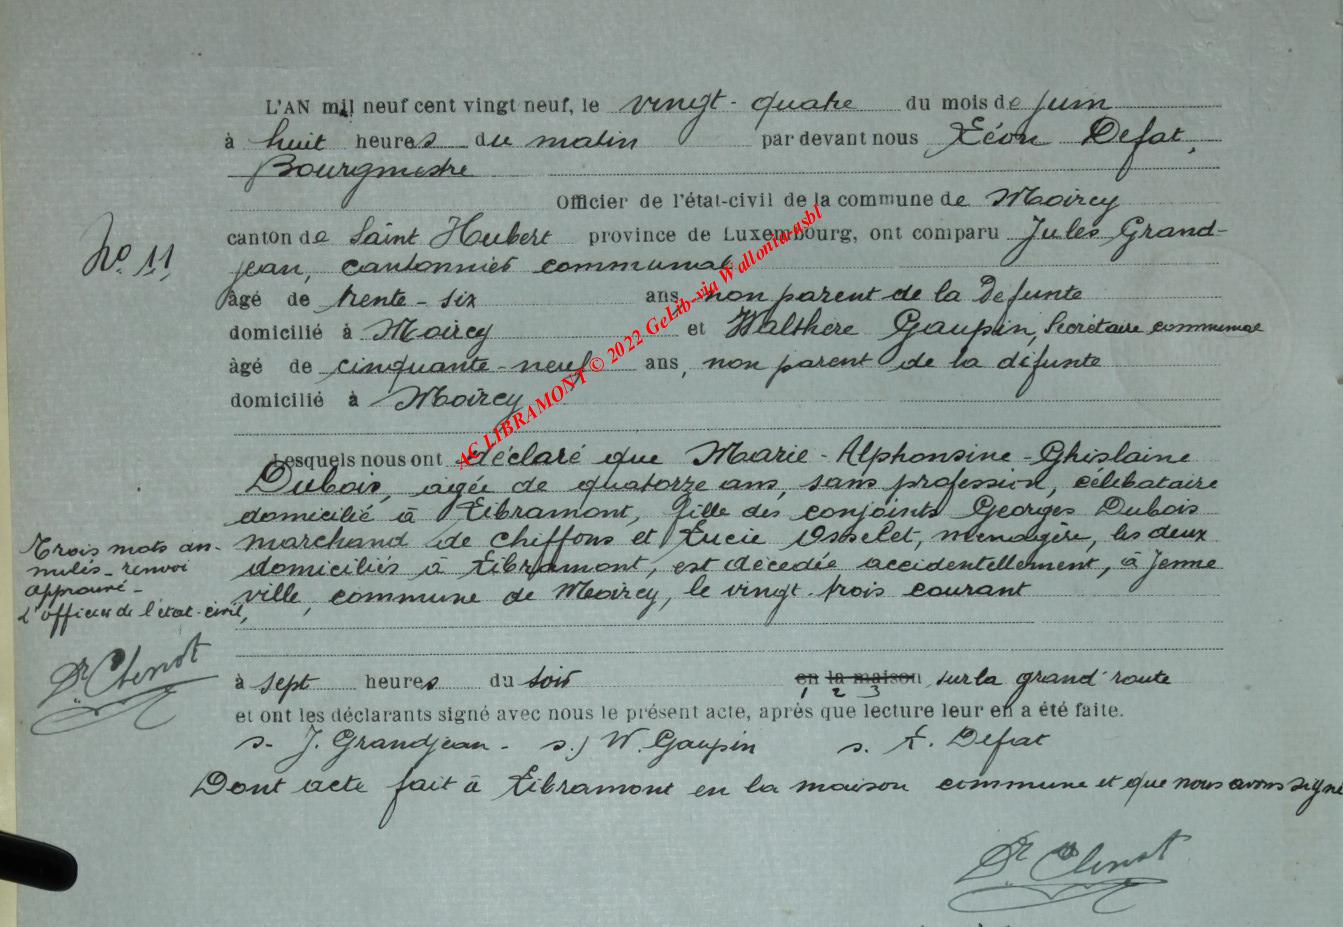 L'AN mil neuf cent vingt neuf, le vingt-quatre du mois de juin
à huit heures du matin par devant nous Léon Defat,
Bourgmestre
Officier de l'état-civil de la commune de Moircy
No 11
canton de Saint Hubert province de Luxembourg, ont comparu Jules Grand-
jean, cantonnier communal
âgé de trente-six ans, non parent de la défunte
domicilié à Moircy et Walthère Gaupin, Secrétaire communal
âgé de cinquante-neuf ans, non parent de la défunte
domicilié à Moircy
Lesquels nous ont déclaré que Marie-Alphonsine-Ghislaine
Dubois, âgée de quatorze ans, sans profession, célibataire
domicilié à Libramont, fille des conjoints Georges Dubois
marchand de chiffons et Lucie Osselet, ménagère, les deux
domiciliés à Libramont, est décédée accidentellement, à Jenne
ville, commune de Moircy, le vingt-trois courant
Trois mots an-
nulés - renvoi
approuvé -
L'officier de l'état-civil,
Dr Clenot
à sept heures du soir en la maison sur la grand'route
1 2 3
et ont les déclarants signé avec nous le présent acte, après que lecture leur en a été faite.
s. J. Grandjean - s.) W. Gaupin s. L. Defat
Dont acte fait à Libramont en la maison commune et que nous avons signé
Dr Clenot
AC LIBRAMONT © 2022 GeLib-via Wallonia-asbl